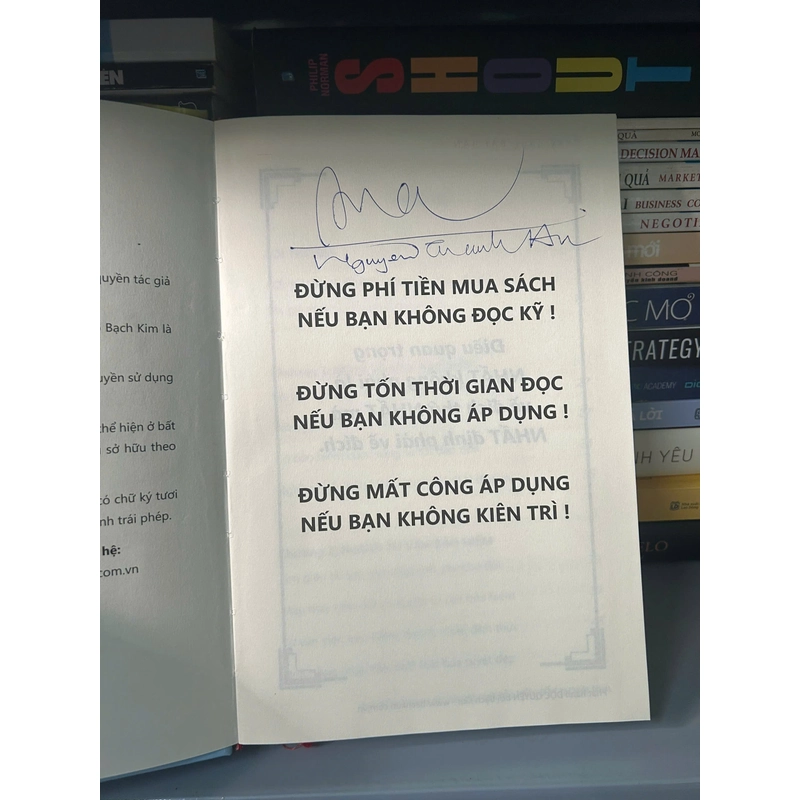 PHILIP
NORMAN
SHOUT
QUẢ
DECISION MA
QUẢ MARKET
BUSINESS CO
NEGOTI
MỚI
NH CÔNG
C MỢ
TRATEGY
ACADEMY
LỜI
NH YÊU
LO
uyền tác giả
Bạch Kim là
uyền sử dụng
thể hiện ở bất
sở hữu theo
có chữ ký tươi
nh trái phép.
hệ:
com.vn
Nguyen Thanh
ĐỪNG PHÍ TIỀN MUA SÁCH
NẾU BẠN KHÔNG ĐỌC KỸ !
ĐỪNG TỐN THỜI GIAN ĐỌC
NẾU BẠN KHÔNG ÁP DỤNG !
ĐỪNG MẤT CÔNG ÁP DỤNG
NẾU BẠN KHÔNG KIÊN TRÌ !